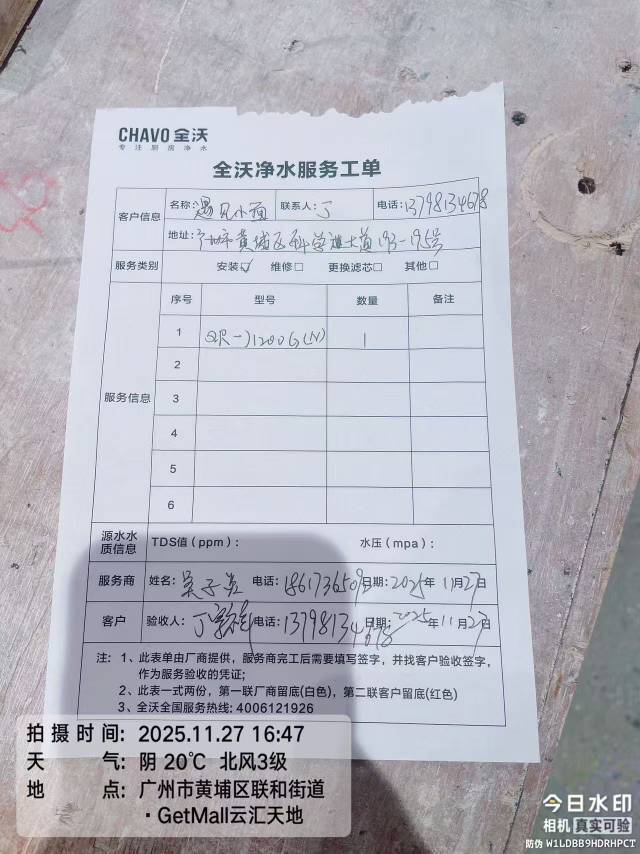 CHAVO 全沃
专注厨房净水
全沃净水服务工单
客户信息 名称: 遇见小面 联系人: 丁 电话: 13798134678
地址: 广州市黄埔区科学城大道193-195号
服务类别 安装☑ 维修□ 更换滤芯□ 其他□
服务信息 序号 型号 数量 备注
1 1200G(N) 1
2
3
4
5
6
源水水质信息 TDS值(ppm): 水压(mpa):
服务商 姓名: 电话: 日期: 2025年11月27日
客户 验收人: 丁 电话: 13798134678 2025年11月27
注: 1、此表单由厂商提供，服务商完工后需要填写签字，并找客户验收签字，
作为服务验收的凭证;
2、此表一式两份，第一联厂商留底(白色)，第二联客户留底(红色)
3、全沃全国服务热线: 4006121926
拍摄时间: 2025.11.27 16:47
天气: 阴 20℃ 北风3级
地点: 广州市黄埔区联和街道
·GetMall云汇天地
今日水印
相机 真实可验
防伪 W1LDBB9HDRHPCT